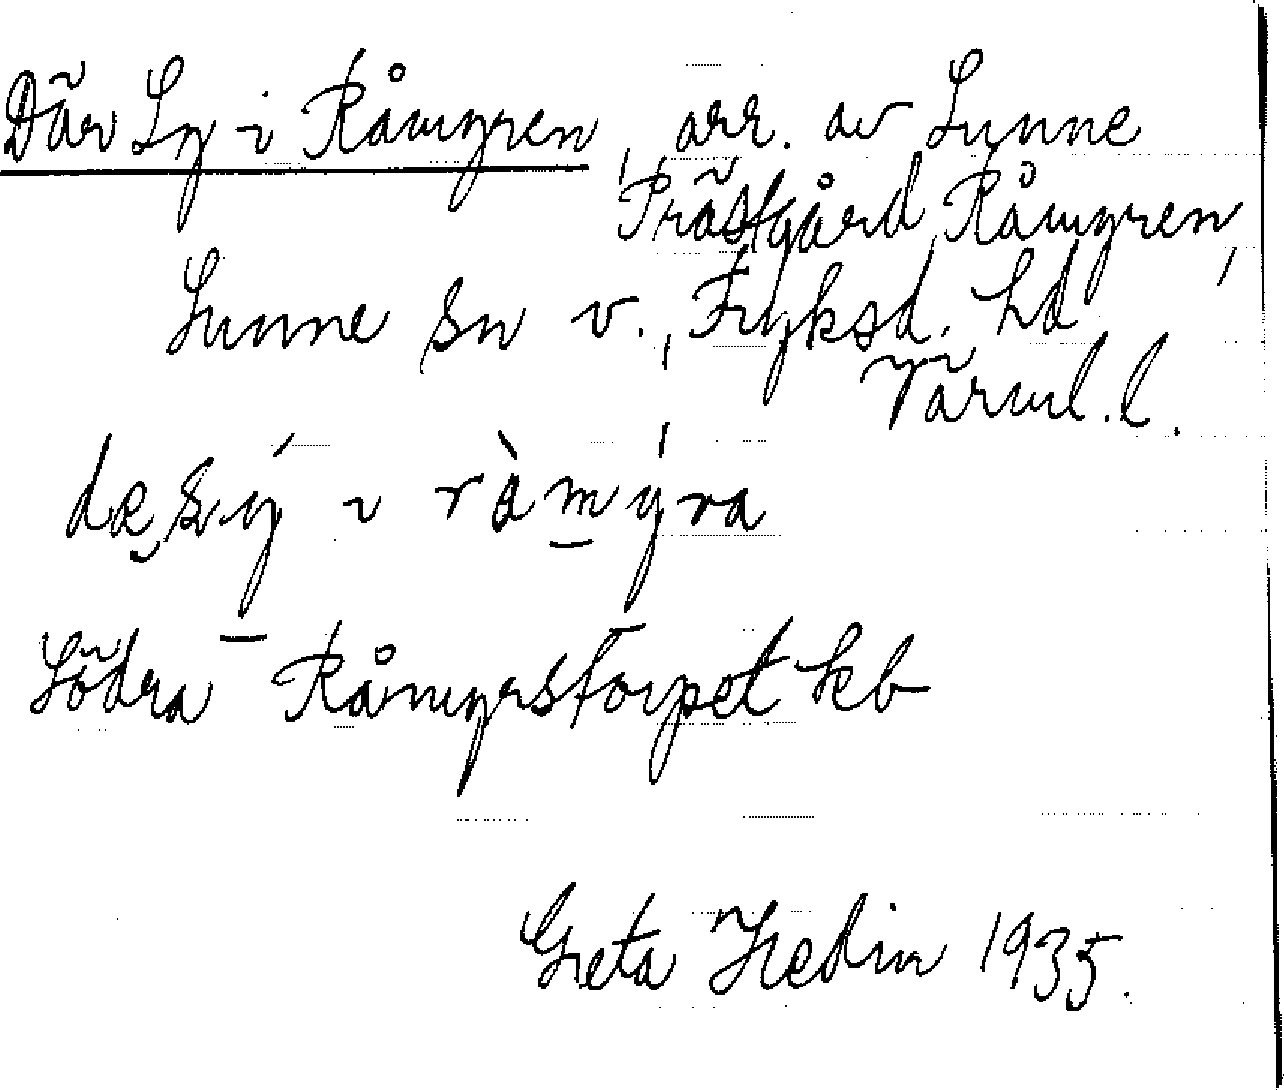 Där Sy i Råmyren, arr. av Sunne
Prästgård, Råmyren,
Sunne sn v., Fryksd. hd
Värml. l.
dæ̮ sý i ràmýra
Södra Råmyrstorpet kb
Greta Hedin 1935.